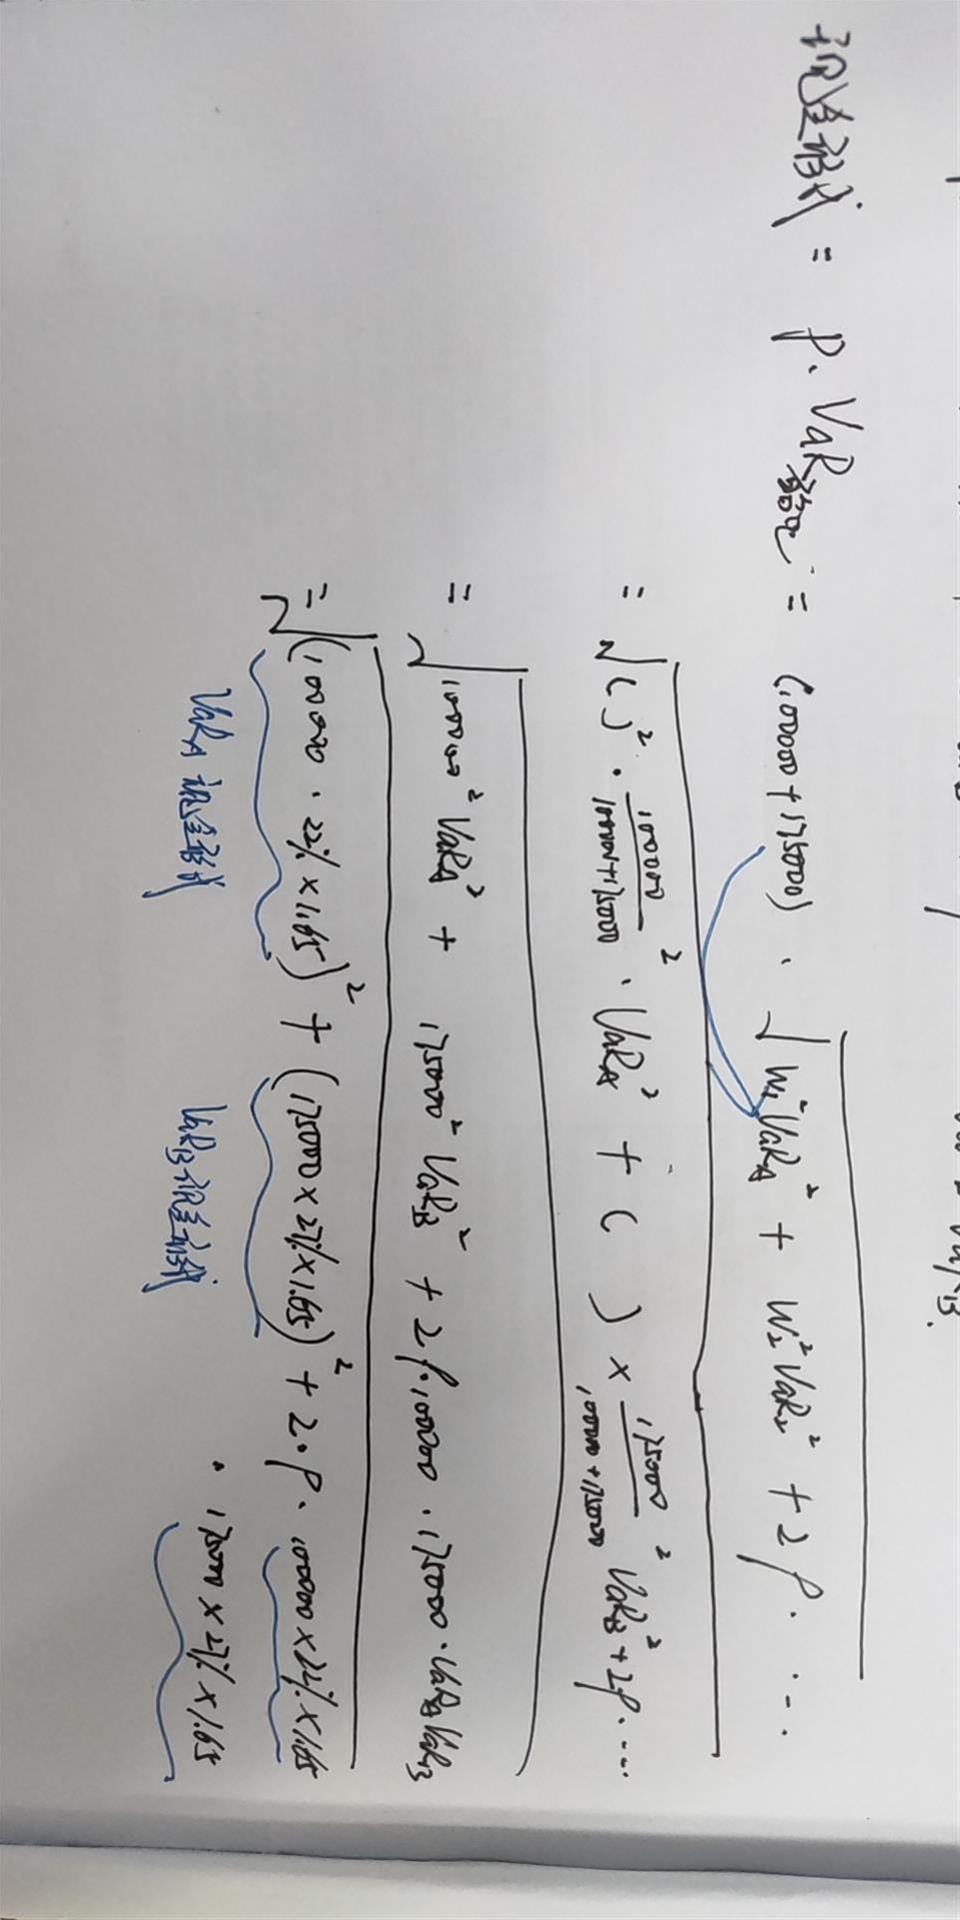 现金形式 = P. VaR组合 = (100000+175000) · √(W₁²VaR_A² + W₂²VaR₂² + 2ρ. ...
= √(( )² · (100000/(100000+175000))² · VaR_A² + ( ) × (175000/(100000+175000))² VaR_B² + 2ρ. ...
= √(100000² VaR_A² + 175000² VaR_B² + 2ρ.100000 · 175000 · VaR_A VaR_B
= √((100000 · 22% × 1.65)² + (175000 × 27% × 1.65)² + 2·ρ. 100000 × 22% × 1.65
· 175000 × 27% × 1.65
VaR_A 现金形式 VaR_B 现金形式
VaR_B.